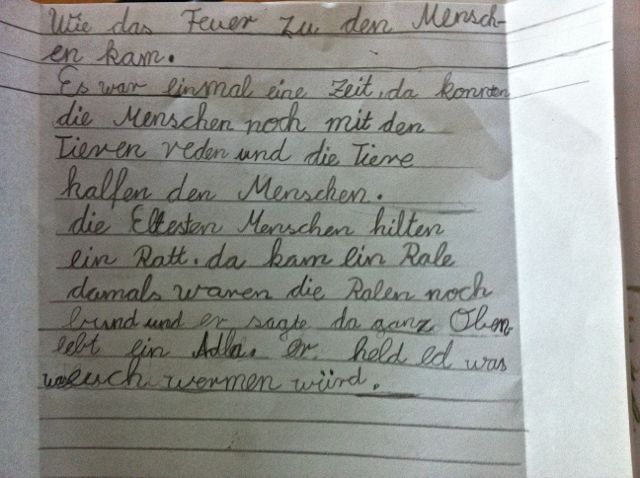 Wie das Feuer zu den Mensch-
en kam.
Es war einmal eine Zeit, da konnten
die Menschen noch mit den
Tieren reden und die Tiere
halfen den Menschen.
die Eltesten Menschen hilten
ein Ratt. da kam ein Rale
damals waren die Ralen noch
bund und er sagte da ganz Oben
lebt ein Adla. er held ed was
euch wermen würd.